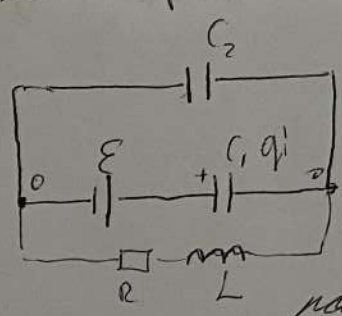 C₂
0 ℰ + C₁ q¡ 0
R L